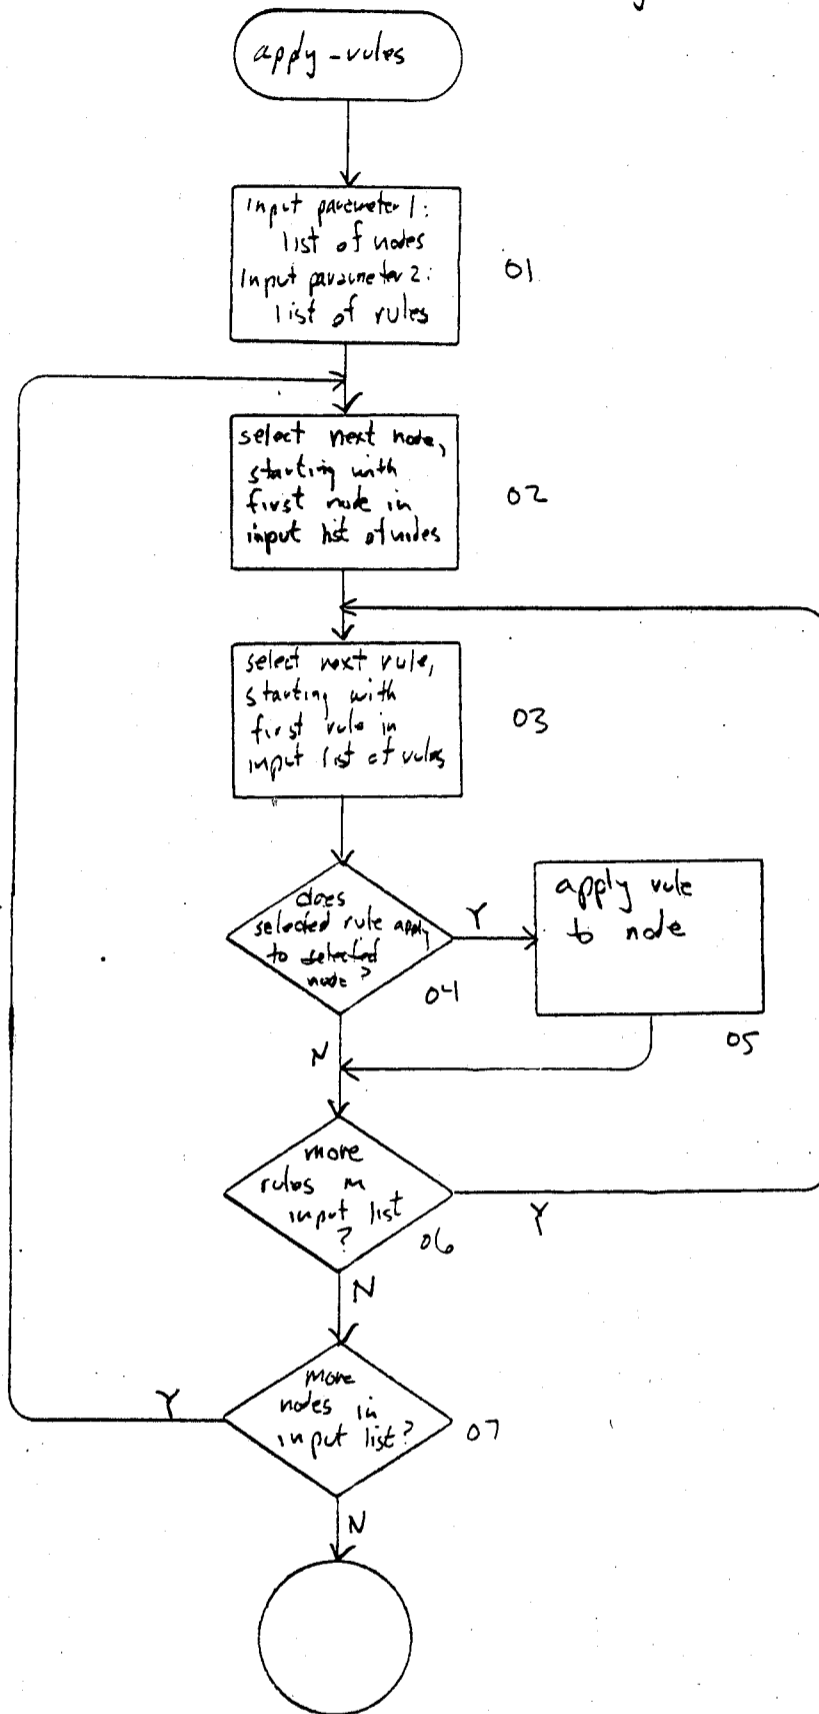 apply-rules
Input parameter 1:
list of nodes
Input parameter 2:
list of rules
01
select next node,
starting with
first node in
input list of nodes
02
select next rule,
starting with
first rule in
input list of rules
03
does
selected rule apply
to selected
node?
Y
04
apply rule
to node
05
N
more
rules in
input list
?
06
Y
N
more
nodes in
input list?
Y
07
N